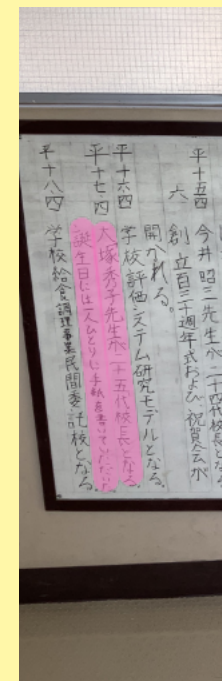 平十五四 今井昭三先生が二十四代校長となる
六 創立百三十周年式および祝賀会が
開かれる。
学校評価システム研究モデルとなる。
平十六四 大塚秀子先生が二十五代校長となる。
平十七四 誕生日には一人ひとりに手紙を書いていただいた
平十八四 学校給食調理事業民間委託校となる。